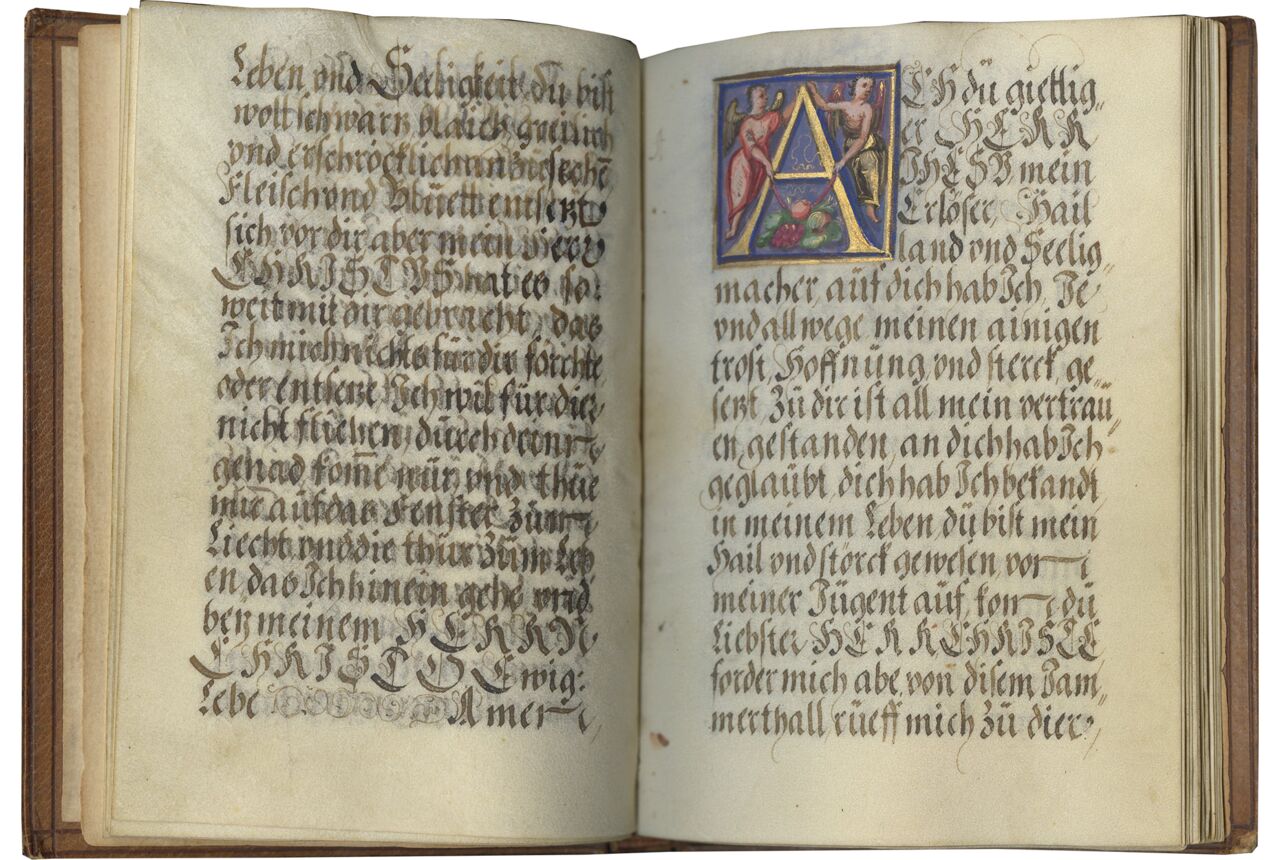 Leben, vnd Seeligkeit, du bist
woll schwartz blaich greilich
vnd erschröcklich anzusechē,
Fleisch vnd Blüett entsetzt
sich vor dir aber mein Herr
CHRISTVS hat es so
weit mit dir gebracht, das
Ich mich nichts für dir förchte
oder entsetze Ich will für dier,
nicht fliehen, dürch deine
genad kom̄e nür, vnd thüe
mir aüf das Fenster zum
Liecht, vnd die thür züm Leb
en, das Ich hinein gehe vnd
bey meinem HERRN
CHRISTO Ewig:
Lebe Amen
ACH dü giettig„
er HERR
IHESV mein
Erlöser, Hail
land vnd Seelig„
macher, aüf dich hab Ich, Je
vnd allwege meinen ainigen
trost, Hoffnüng, vnd sterck, ge„
setzt, Zü dir ist all mein vertraü„
en, gestanden, an dich hab Ich
geglaübt, dich hab Ich bekandt,
in meinem Leben, dü bist mein
Hail vnd störck gewesen, von
meiner Jügent aüf, kom dü
Liebster HERR CHRISTE
forder mich abe, von disem Jam„
merthall, rüeff mich zü dier,